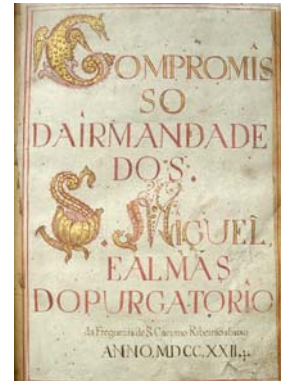 COMPROMIS
SO
DAIRMANDADE
DO S.
S. MIGUEL,
EALMAS
DOPURGATORIO
da Freguezia de S. Caetano Ribeirão abaixo
ANNO, MDCC, XXII,